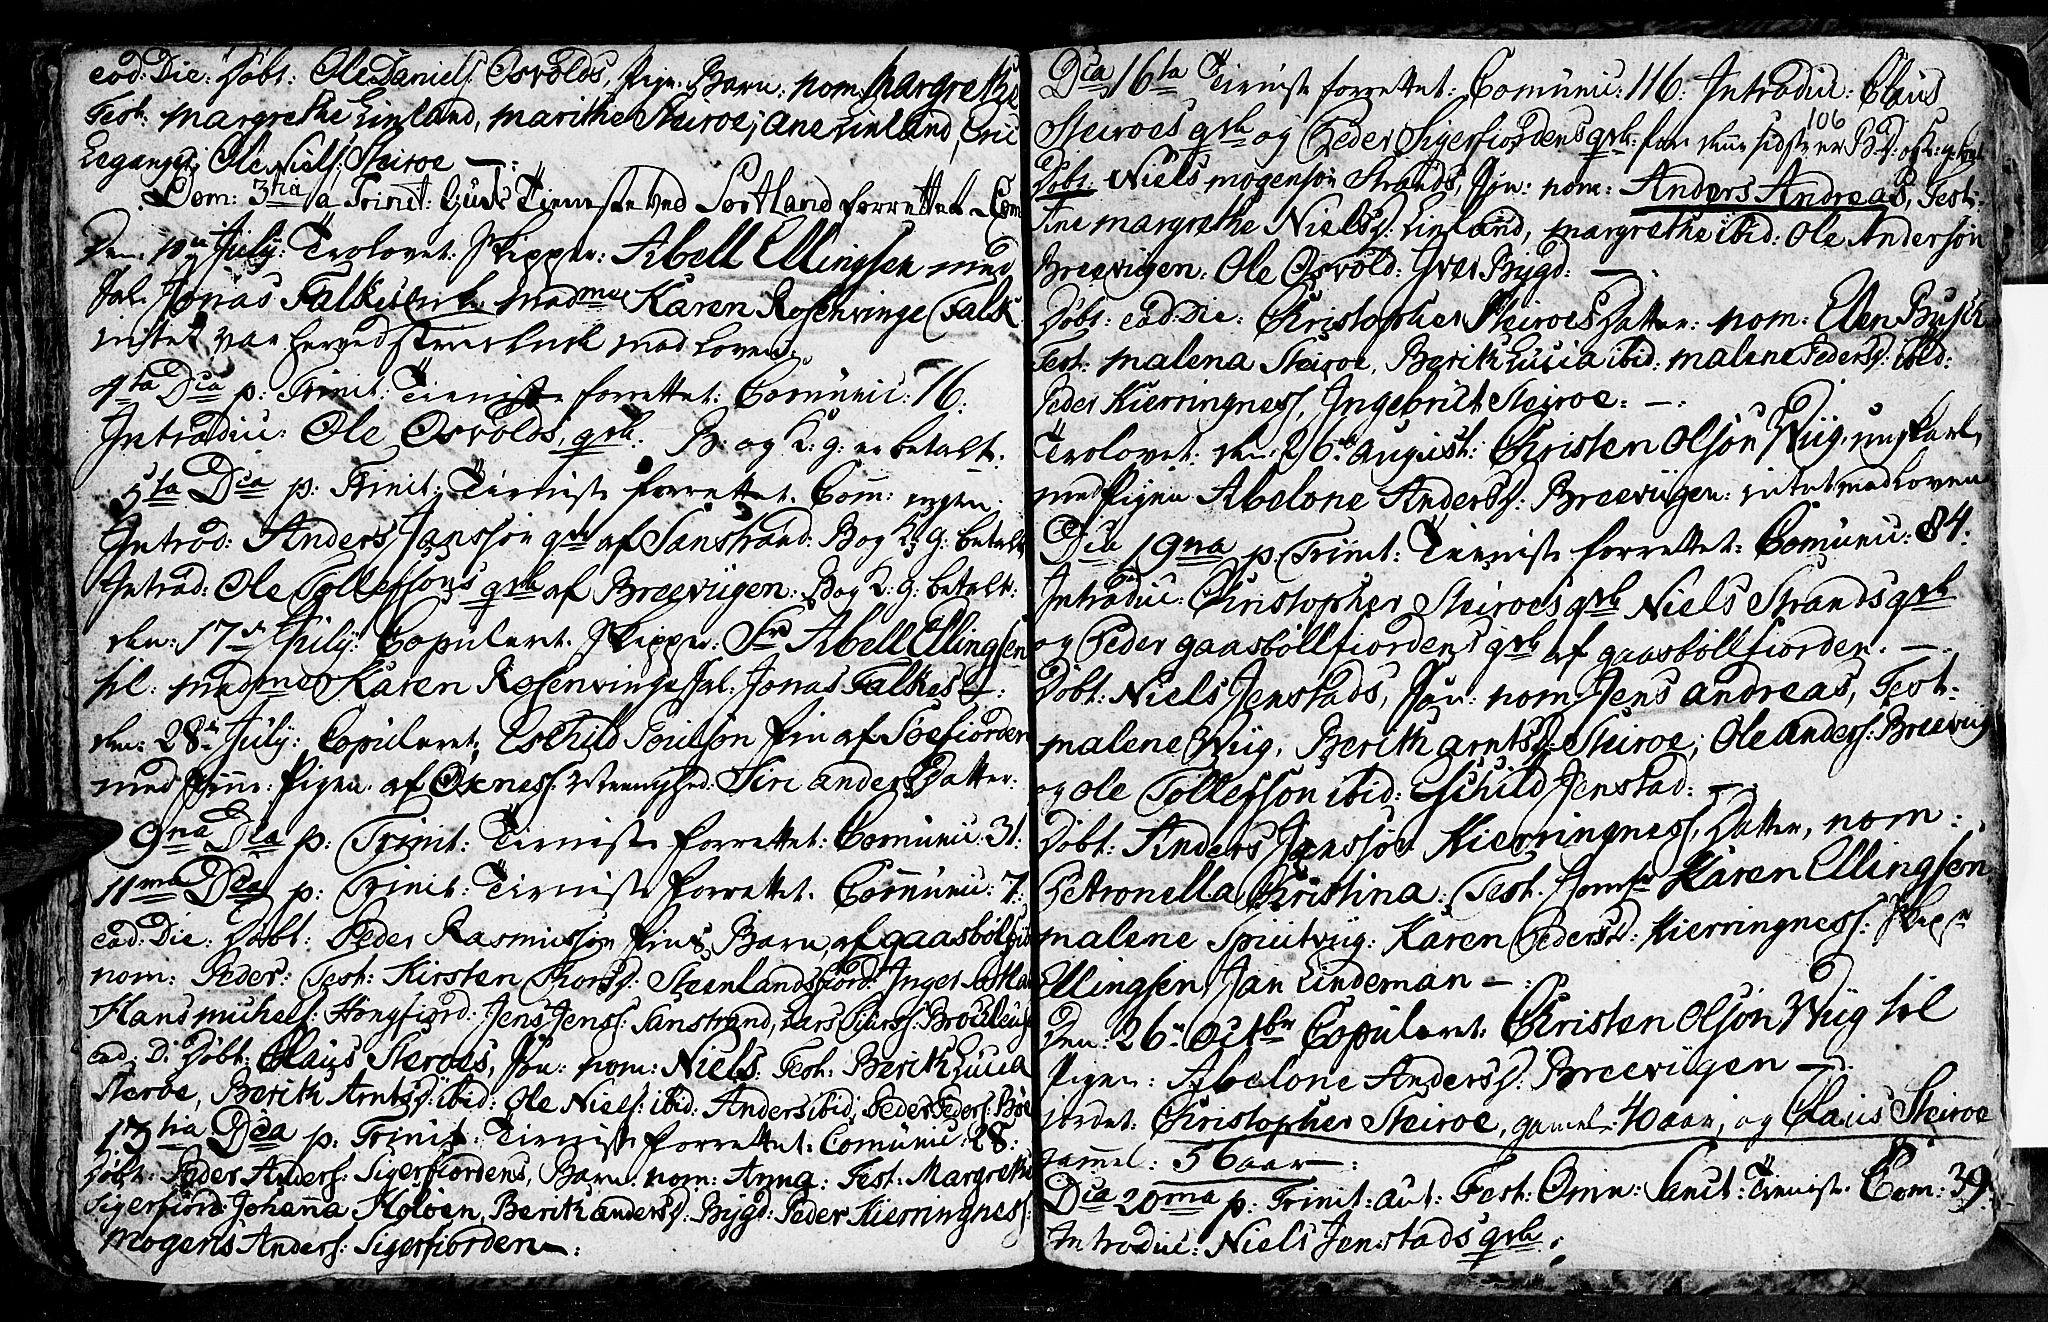 eod: Die: Døbt: Ole Daniels: Osvolds, Barn: nom: Margrethe
Test: Margrethe Linland, Marithe Steiroe, Ane Linland, Eric
Leganger, Ole Niels: Steiroe —:
Dom: 3tia a Trinit: Guds Tieneste ved Sortland forrettet. Com
Den July: Trolovet: Skipper: Abell Ellingsen med
Sal. Jonas Falkes Enke Madme Karen Rosenvinge Falk
med Loven.
4ta Dca p: Trinit: Tieniste forrettet: Comunic: 76.
Introduc: Ole Osvolds qvh. B: og K: g: er betalt.
5ta Dca p: Trinit: Tieniste forrettet. Com: ingen.
Introd: Anders Jansøn qvh af Sanstrand: B og K: g: betalt
Introd: Ole Tollefsøns qvh af Breevigen: B og K: g: betalt:
den: 17de July: Copuleret. Skipper: Sr Abell Ellingsen
til: Madme Karen Rosenvinge Sal: Jonas Falkes E—:
den: 28de July: Copuleret, Eschild Poulsøn Fin af Søefiorden
med Pigen af Oxness: Siri Anders Datter:
9na Dca p: Trinit: Tieniste forrettet: Comunic: 31:
11ma Dca p: Trinit: Tieniste forrettet. Comunic: 7.
eod: Die: Døbt: Peder Rasmussøn Fins Barn, af Gaasbølfio
nom: Peder: Test: Kirsten Thorsd: Steenlandsfiord: Inger
Hans Michels: Hongfiord: Jens Jenss: Sanstrand, Lars Siurss:
eod: D: Døbt: Claus Steroes, Søn: nom: Niels: Test: Berith Lucia
Steroe, Berith Arntsd: ibid: Ole Niels: ibid: Anders ibid; Peder Peders:
13tia Dca p: Trinit: Tieniste forrettet: Comunic: 28:
Døbt: Peder Anders: Sigerfiordens, Barn: nom: Anna: Test: Margrethe
Sigerfiord Johanna Holmen, Berith Andersd: Bygd: Peder Kierringness:
Mogens Anders: Sigerfiorden —:
Dca 16ta Tieniste forrettet: Comunic: 116: Introduc: Claus
106
Steiroes qvh og Peder Sigerfiordens qvh: for denne sidste er B: og K: g: betalt
Døbt: Niels Mogensøn Strands, Søn: nom: Anders Andreas, Test:
Tine Margrethe Nielsd: Linland, Margrethe ibid: Ole Andersøn
Breevigen: Ole Osvold: Iver Bygd: —.
Døbt: eod: Die: Christopher Steiroes Datter: nom: Elen Busch
Test: Malena Steiroe, Berith Lucia ibid: Malene Pedersd: ibid:
Peder Kierringness, Ingebrict Steiroe: —:
Trolovet: den: 26de August: Christen Olsøn Wiig, ung Karl,
med Pigen Abelone Andersd: Breevigen: intet mod Loven
Dca 19na p: Trinit: Tieniste forrettet: Comunic: 84:
Introduc: Christopher Steiroes qvh Niels Strands qvh
og Peder Gaasbøllfiordens qvh af Gaasbøllfiorden. —.
Døbt: Niels Jenstads, Søn: nom: Jens Andreas, Test:
Malene Wiig, Berith Arntsd: Steiroe; Ole Anders: Breevig
og Ole Tollefsøn ibid: Eschild Jenstad: —.
Døbt: Anders Jansøn Kierringness, Datter, nom:
Petronella Christina: Test: Karen Ellingsen
Malene Spiutviig: Karen Pedersd: Kierringness:
Ellingsen, Jan Lindeman —:
Den: 26de Octbr Copuleret: Christen Olsøn Wiig til
Pigen: Abelone Andersd: Breevigen —.
jordet: Christopher Steiroe, gamel: 40 aar, og Claus Steiroe
gammel: 56 aar —:
Dca 20ma p: Trinit: aut: Fest: Omn: Sanct: Tieniste. Com: 39:
Introduc: Niels Jenstads qvh: